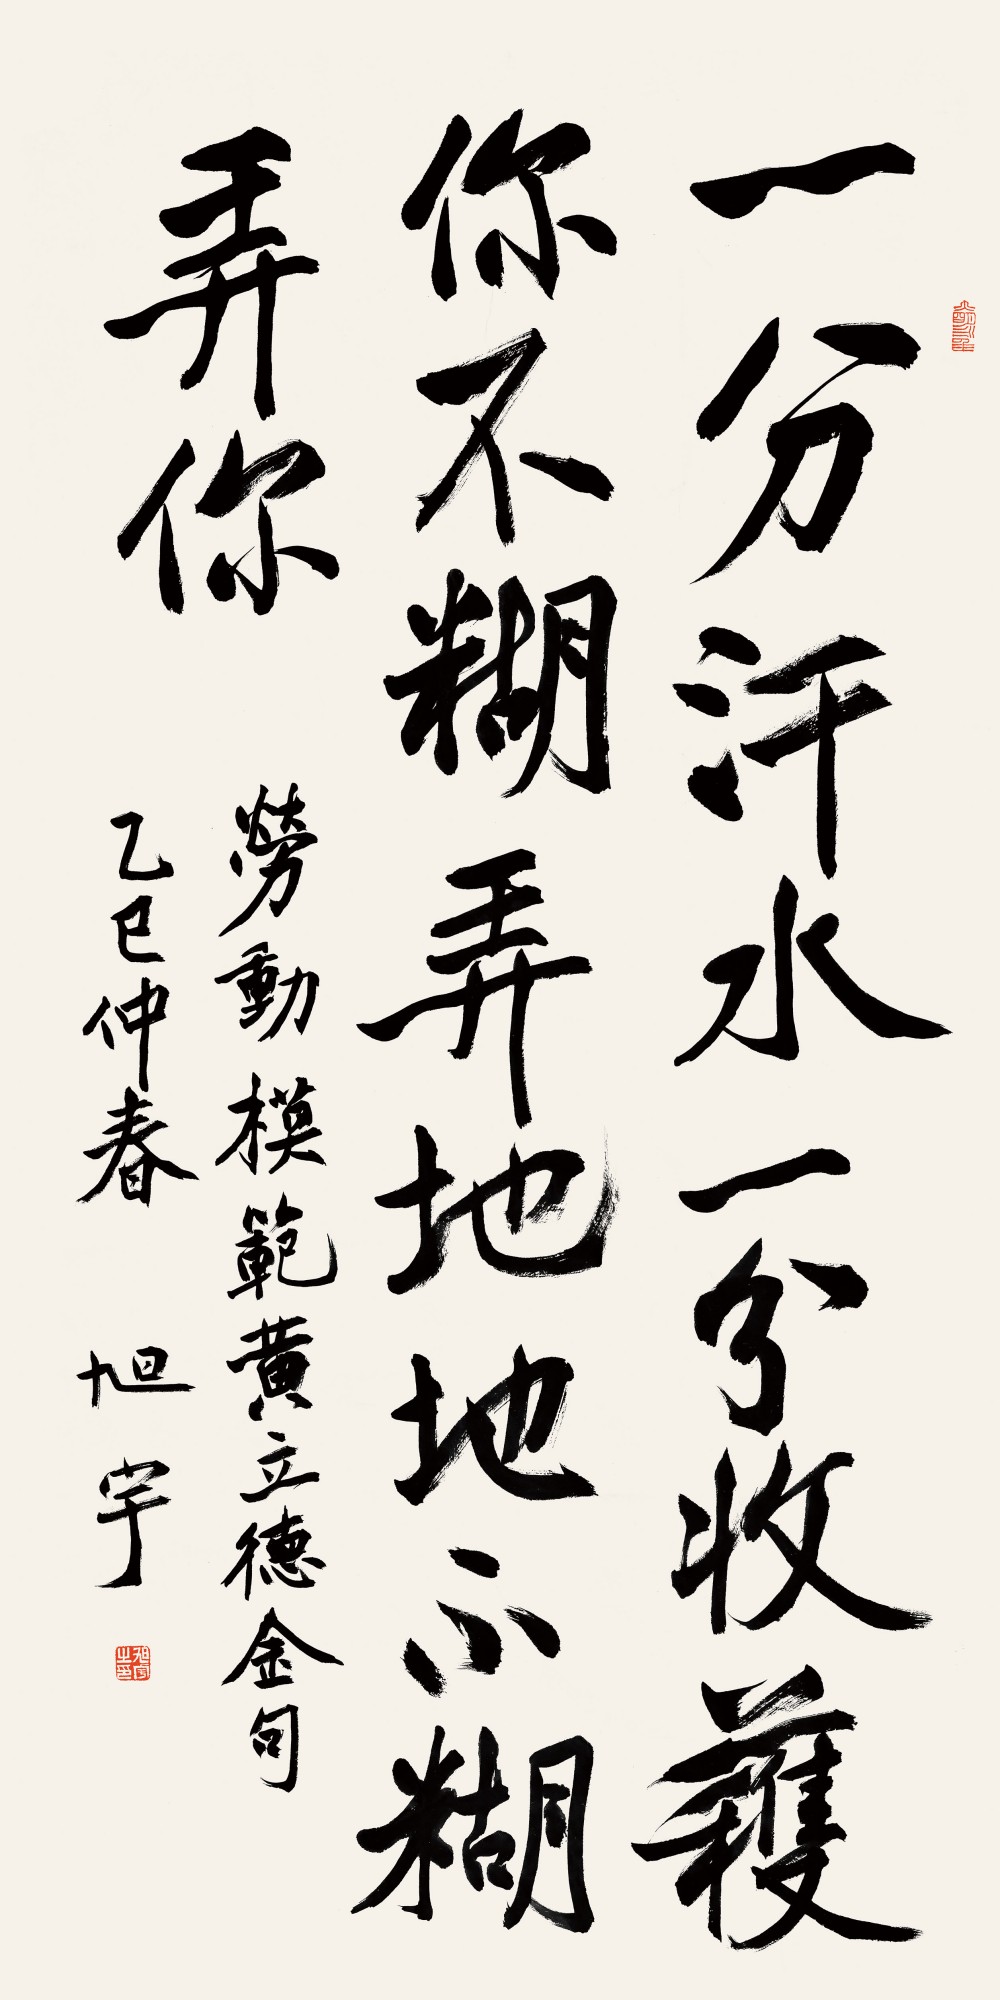 一分汗水一分收穫
你不糊弄地地不糊
弄你
勞動模範黄立德金句
乙巳仲春 旭宇
旭宇之印